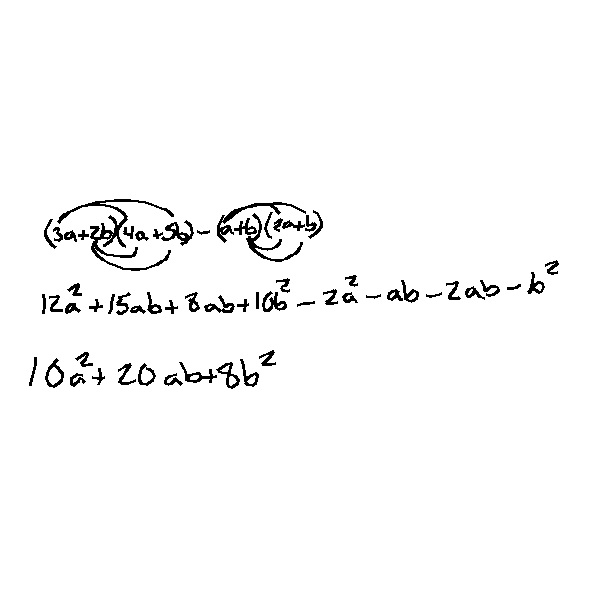 (3a+2b)(4a+5b)-(a+b)(2a+b)
12a²+15ab+8ab+10b²-2a²-ab-2ab-b²
10a²+20ab+8b²